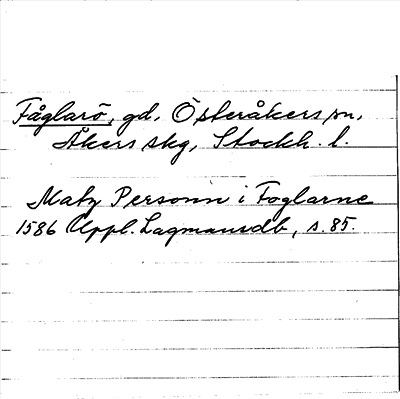 Fåglarö, gd, Österåkers sn,
Åkers skg, Stockh. l.
Matz Personn i Foglarne
1586 Uppl. Lagmansdb, s. 85.